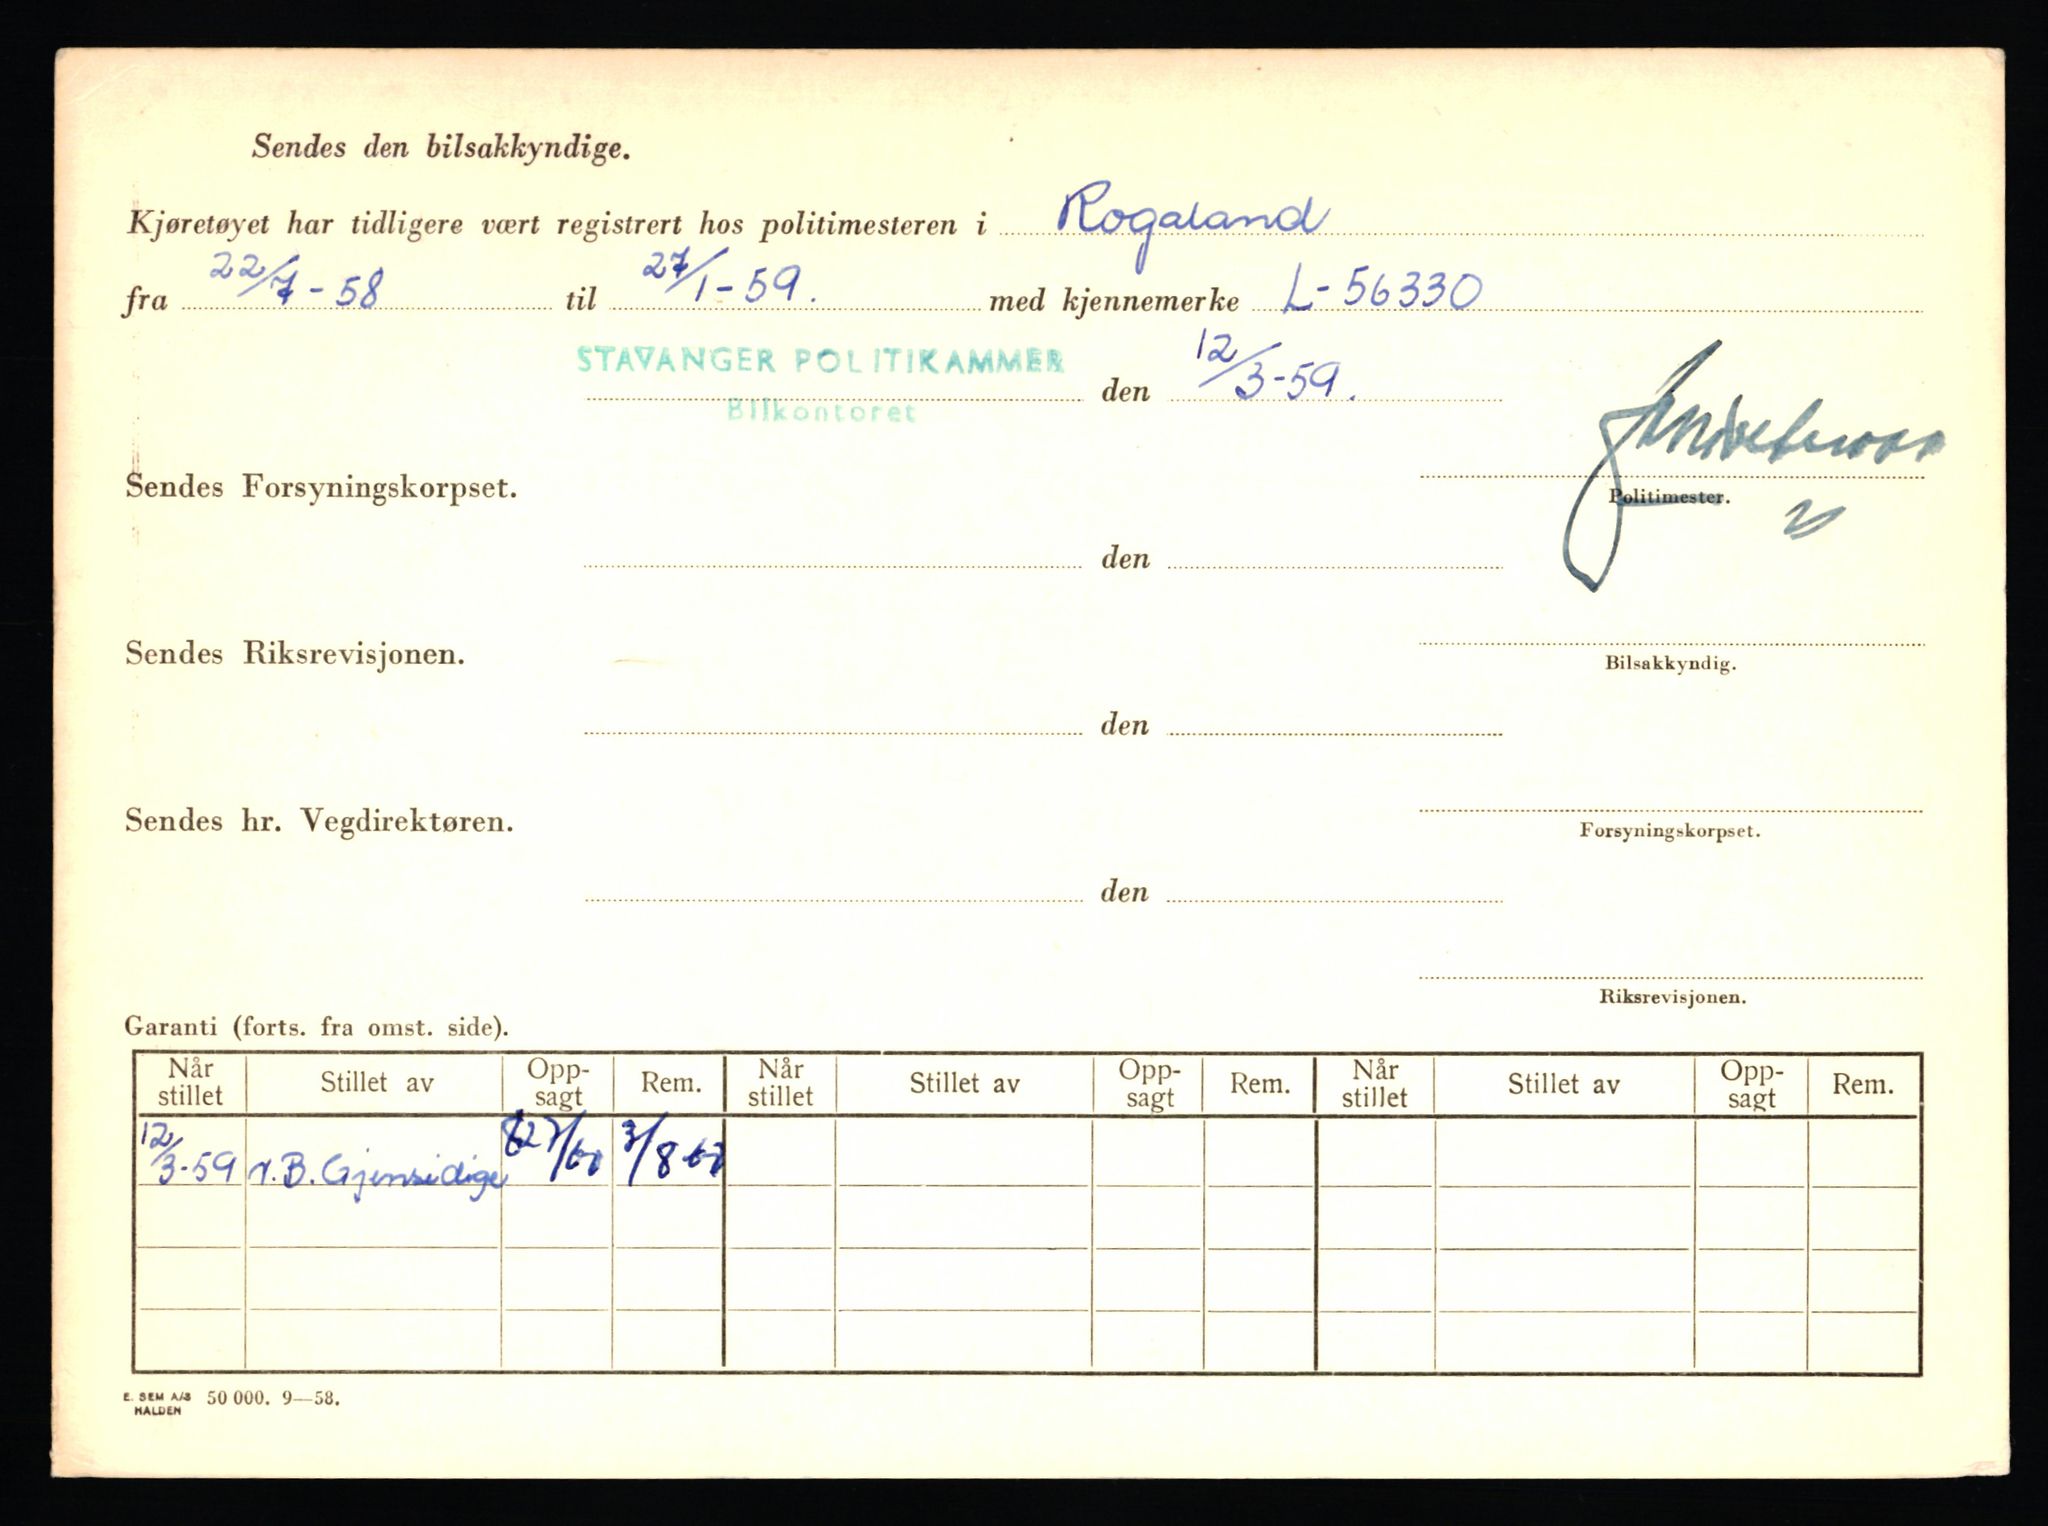 Sendes den bilsakkyndige.
Kjøretøyet har tidligere vært registrert hos politimesteren i Rogaland
fra 22/7-58 til 27/1-59. med kjennemerke L-56330
STAVANGER POLITIKAMMER den 12/3-59.
Bilkontoret
Sendes Forsyningskorpset.
Politimester.
den
Sendes Riksrevisjonen.
Bilsakkyndig.
den
Sendes hr. Vegdirektøren.
Forsyningskorpset.
den
Riksrevisjonen.
Garanti (forts. fra omst. side).
Når stillet Stillet av Opp-sagt Rem. Når stillet Stillet av Opp-sagt Rem. Når stillet Stillet av Opp-sagt Rem.
12/3-59 B. Gjensidige 3/8 60
E. SEM A/S HALDEN 50 000. 9—58.